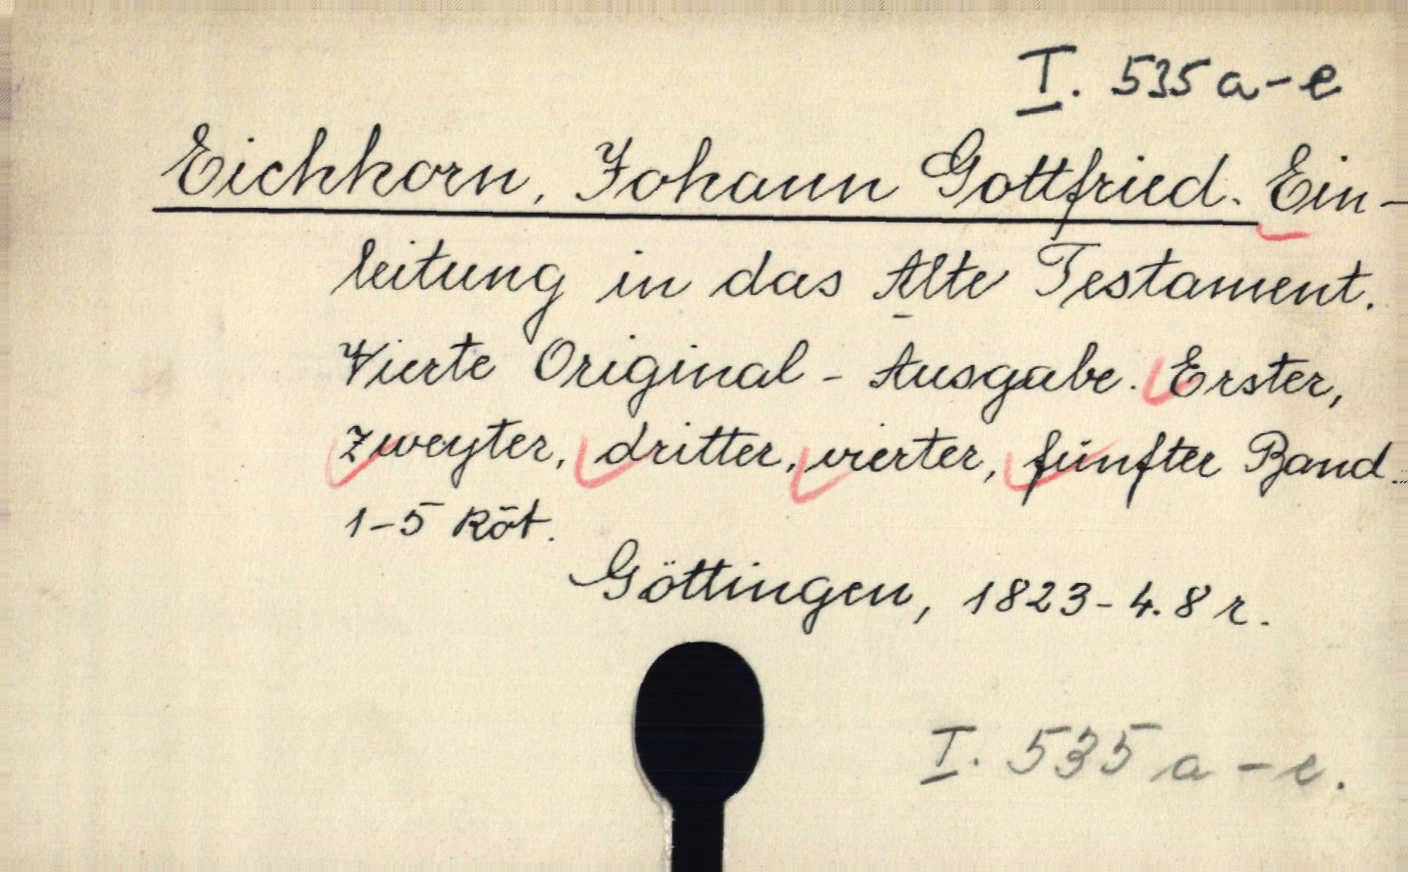 I. 535 a-e
Eichhorn, Johann Gottfried. Ein-
leitung in das Alte Testament.
Vierte Original-Ausgabe. Erster,
zweyter, dritter, vierter, fünfter Band.
1-5 Köt.
Göttingen, 1823-4. 8 r.
I. 535 a-e.